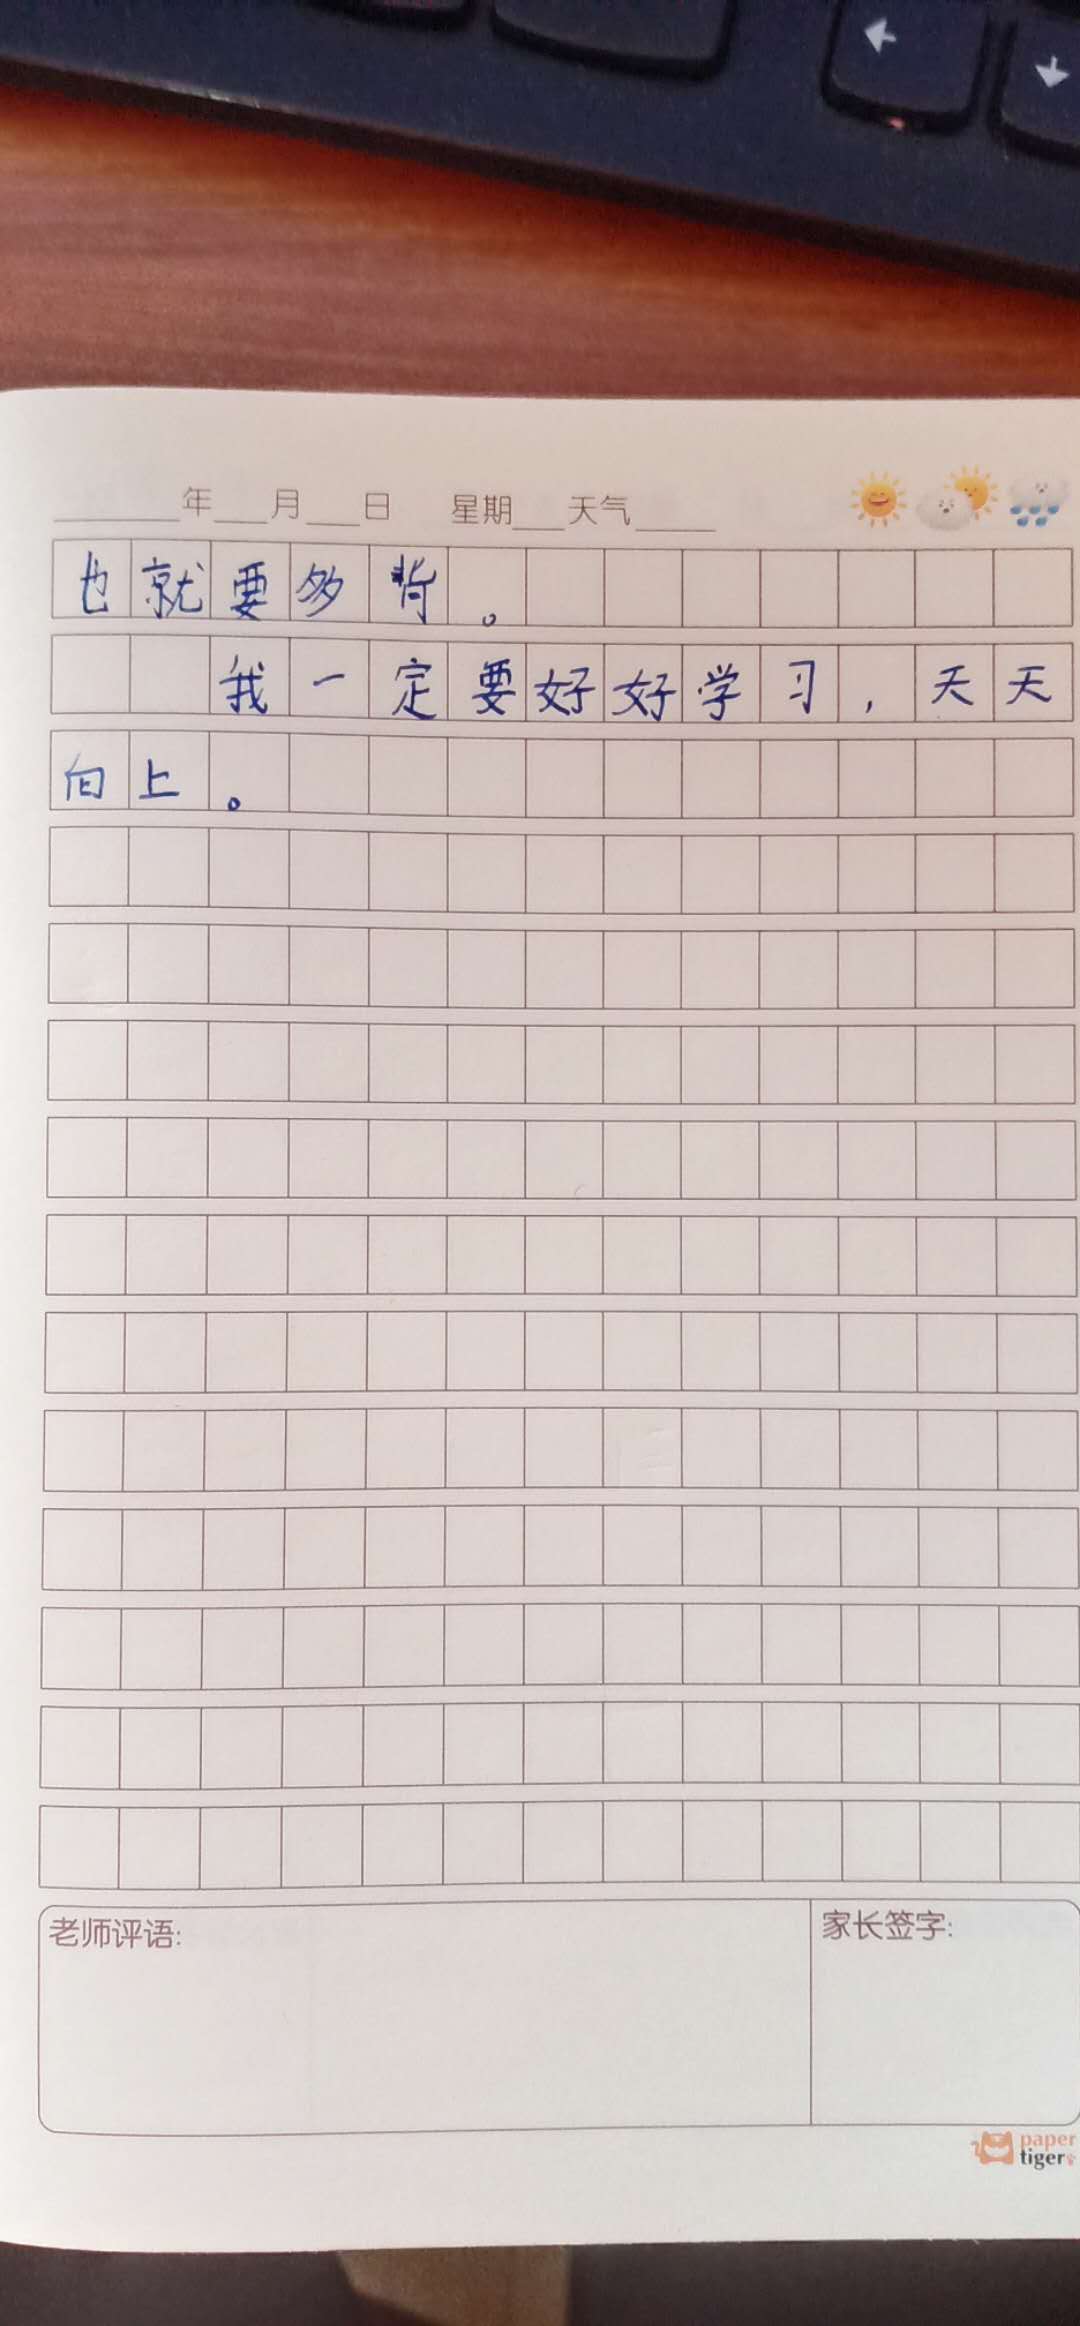 年 月 日 星期 天气
也就要多背。
我一定要好好学习，天天
向上。
老师评语:
家长签字:
paper
tiger